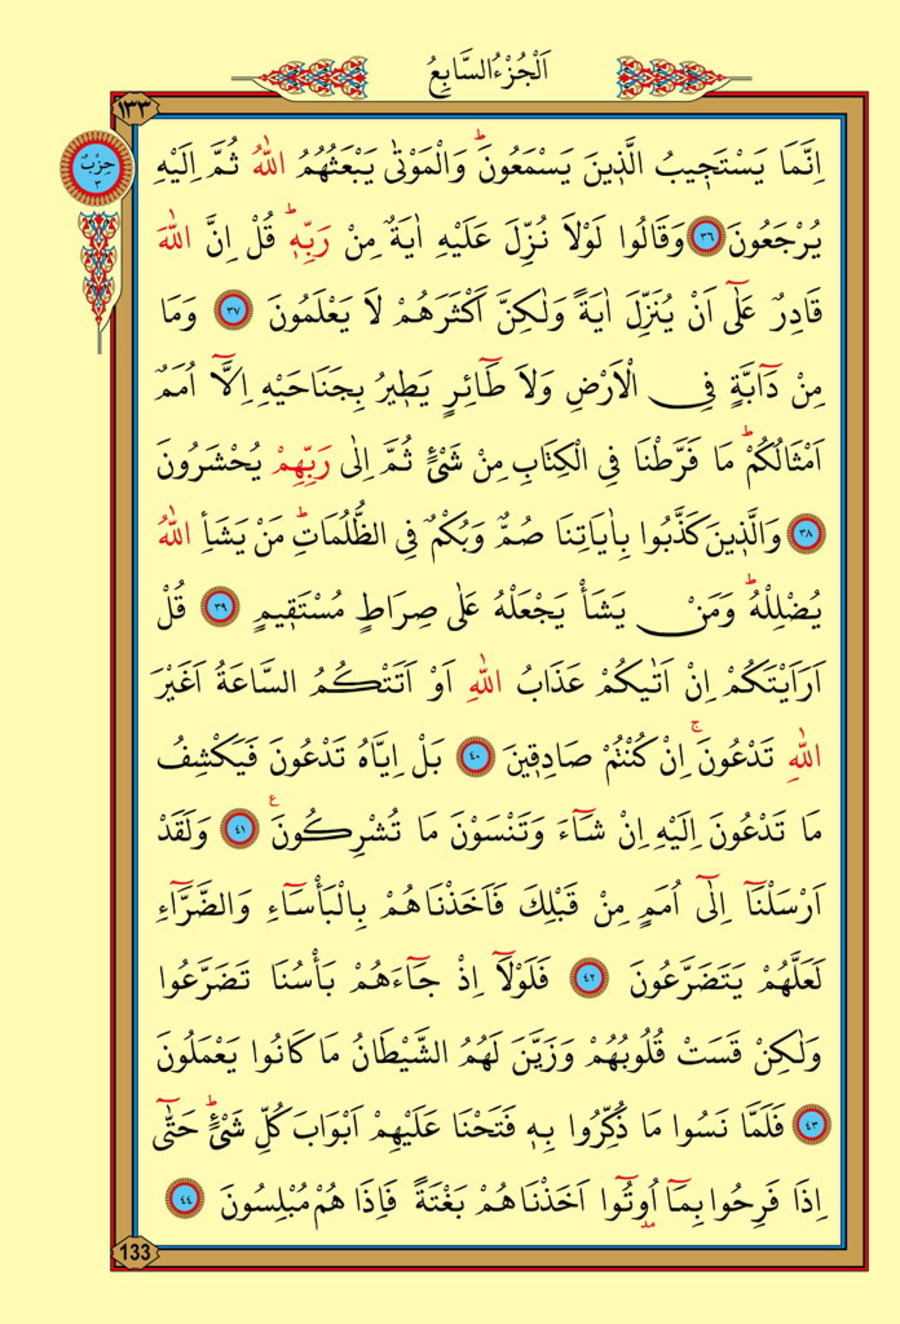 اَلْجُزْءُالسَّابِعُ
١٣٣
حِزْبٌ
٣
اِنَّمَا يَسْتَجٖيبُ الَّذٖينَ يَسْمَعُونَؕ وَالْمَوْتٰى يَبْعَثُهُمُ اللّٰهُ ثُمَّ اِلَيْهِ
يُرْجَعُونَ ﴿٣٦﴾ وَقَالُوا لَوْلَا نُزِّلَ عَلَيْهِ اٰيَةٌ مِنْ رَبِّهٖؕ قُلْ اِنَّ اللّٰهَ
قَادِرٌ عَلٰٓى اَنْ يُنَزِّلَ اٰيَةً وَلٰكِنَّ اَكْثَرَهُمْ لَا يَعْلَمُونَ ﴿٣٧﴾ وَمَا
مِنْ دَٓابَّةٍ فِي الْاَرْضِ وَلَا طَٓائِرٍ يَطٖيرُ بِجَنَاحَيْهِ اِلَّٓا اُمَمٌ
اَمْثَالُكُمْؕ مَا فَرَّطْنَا فِي الْكِتَابِ مِنْ شَيْءٍ ثُمَّ اِلٰى رَبِّهِمْ يُحْشَرُونَ
﴿٣٨﴾ وَالَّذٖينَ كَذَّبُوا بِاٰيَاتِنَا صُمٌّ وَبُكْمٌ فِي الظُّلُمَاتِؕ مَنْ يَشَأِ اللّٰهُ
يُضْلِلْهُؕ وَمَنْ يَشَأْ يَجْعَلْهُ عَلٰى صِرَاطٍ مُسْتَقٖيمٍ ﴿٣٩﴾ قُلْ
اَرَاَيْتَكُمْ اِنْ اَتٰيكُمْ عَذَابُ اللّٰهِ اَوْ اَتَتْكُمُ السَّاعَةُ اَغَيْرَ
اللّٰهِ تَدْعُونَۚ اِنْ كُنْتُمْ صَادِقٖينَ ﴿٤٠﴾ بَلْ اِيَّاهُ تَدْعُونَ فَيَكْشِفُ
مَا تَدْعُونَ اِلَيْهِ اِنْ شَٓاءَ وَتَنْسَوْنَ مَا تُشْرِكُونَ ع ﴿٤١﴾ وَلَقَدْ
اَرْسَلْنَٓا اِلٰٓى اُمَمٍ مِنْ قَبْلِكَ فَاَخَذْنَاهُمْ بِالْبَأْسَٓاءِ وَالضَّرَّٓاءِ
لَعَلَّهُمْ يَتَضَرَّعُونَ ﴿٤٢﴾ فَلَوْلَٓا اِذْ جَٓاءَهُمْ بَأْسُنَا تَضَرَّعُوا
وَلٰكِنْ قَسَتْ قُلُوبُهُمْ وَزَيَّنَ لَهُمُ الشَّيْطَانُ مَا كَانُوا يَعْمَلُونَ
﴿٤٣﴾ فَلَمَّا نَسُوا مَا ذُكِّرُوا بِهٖ فَتَحْنَا عَلَيْهِمْ اَبْوَابَ كُلِّ شَيْءٍؕ حَتّٰٓى
اِذَا فَرِحُوا بِمَٓا اُو۫تُٓوا اَخَذْنَاهُمْ بَغْتَةً فَاِذَا هُمْ مُبْلِسُونَ ﴿٤٤﴾
133